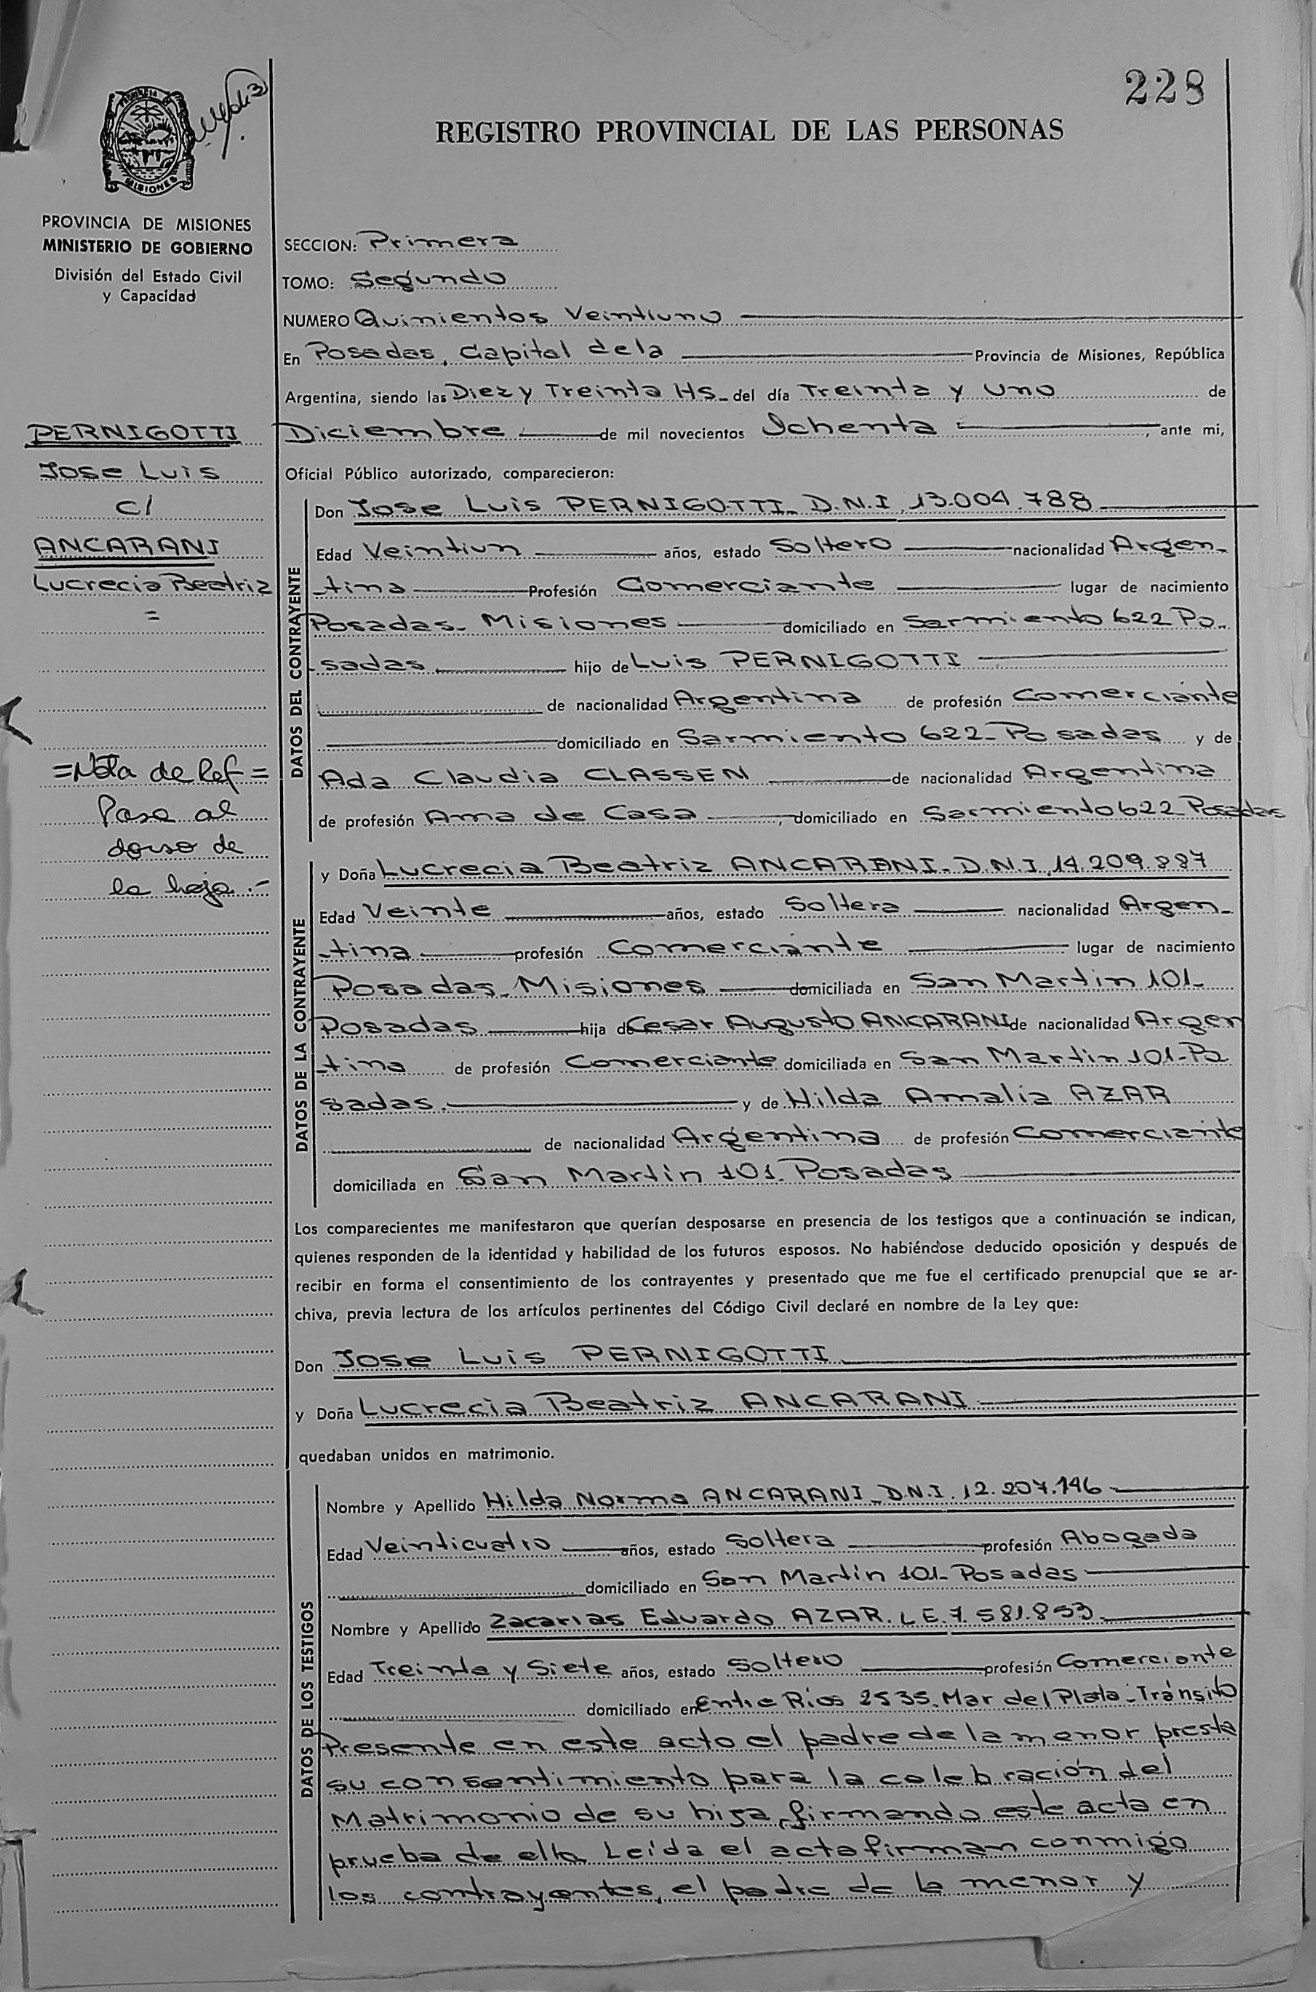 228
REGISTRO PROVINCIAL DE LAS PERSONAS
PROVINCIA
MISIONES
PROVINCIA DE MISIONES
MINISTERIO DE GOBIERNO
División del Estado Civil
y Capacidad
PERNIGOTTI
Jose Luis
c/
ANCARANI
Lucrecia Beatriz
=
=Nota de Ref=
Pasa al
dorso de
la hoja.-
SECCION: Primera
TOMO: Segundo
NUMERO Quinientos Veintiuno
En Posadas, Capital dela Provincia de Misiones, República
Argentina, siendo las Diez y Treinta HS_ del día Treinta y uno de
Diciembre de mil novecientos Ochenta , ante mi,
Oficial Público autorizado, comparecieron:
DATOS DEL CONTRAYENTE
Don Jose Luis PERNIGOTTI_ D.N.I. 13.004.788
Edad Veintiun años, estado Soltero nacionalidad Argen-
tina Profesión Comerciante lugar de nacimiento
Posadas- Misiones domiciliado en Sarmiento 622 Po-
sadas hijo de Luis PERNIGOTTI
de nacionalidad Argentina de profesión Comerciante
domiciliado en Sarmiento 622- Posadas y de
Ada Claudia CLASSEN de nacionalidad Argentina
de profesión Ama de Casa , domiciliado en Sarmiento 622 Posadas
DATOS DE LA CONTRAYENTE
y Doña Lucrecia Beatriz ANCARANI- D.N.I. 14.209.887
Edad Veinte años, estado Soltera nacionalidad Argen-
tina profesión Comerciante lugar de nacimiento
Posadas- Misiones domiciliada en San Martin 101-
Posadas hija de Cesar Augusto ANCARANI de nacionalidad Argen
tina de profesión Comerciante domiciliada en San Martin 101-Po
sadas. y de Hilda Amalia AZAR
de nacionalidad Argentina de profesión Comerciante
domiciliada en San Martin 101. Posadas
Los comparecientes me manifestaron que querían desposarse en presencia de los testigos que a continuación se indican,
quienes responden de la identidad y habilidad de los futuros esposos. No habiéndose deducido oposición y después de
recibir en forma el consentimiento de los contrayentes y presentado que me fue el certificado prenupcial que se ar-
chiva, previa lectura de los artículos pertinentes del Código Civil declaré en nombre de la Ley que:
Don Jose Luis PERNIGOTTI
y Doña Lucrecia Beatriz ANCARANI
quedaban unidos en matrimonio.
DATOS DE LOS TESTIGOS
Nombre y Apellido Hilda Norma ANCARANI_ D.N.I. 12.207.146
Edad Veinticuatro años, estado Soltera profesión Abogada
domiciliado en San Martin 101- Posadas
Nombre y Apellido Zacarias Eduardo AZAR. L.E. 7.581.853
Edad Treinta y Siete años, estado Soltero profesión Comerciante
domiciliado en Entre Ríos 2535. Mar del Plata- Tránsito
Presente en este acto el padre de la menor presta
su consentimiento para la celebración del
Matrimonio de su hija, firmando este acta en
prueba de ello. Leída el acta firman conmigo
los contrayentes, el padre de la menor y